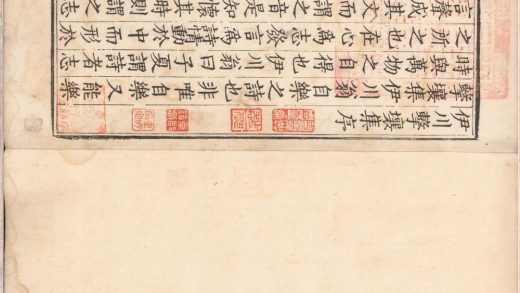 伊川擊壤集序
擊壤集伊川翁自樂之詩也非唯自樂又能樂
時與萬物之自得也伊川翁曰子夏謂詩者志
之所之也在心爲志發言爲詩情動於中而形於
言聲成其文而謂之音是知懷其時則謂之志